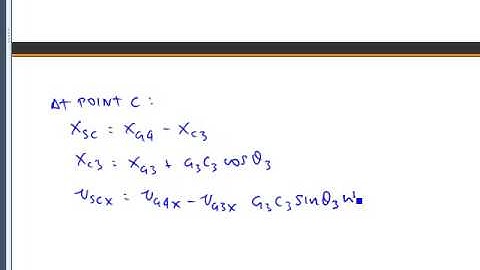 AT POINT C :
x_SC = x_G4 - x_C3
x_C3 = x_G3 + G_3C_3 cosθ_3
v_SCX = v_G4X - v_G3X G_3C_3 sinθ_3 w